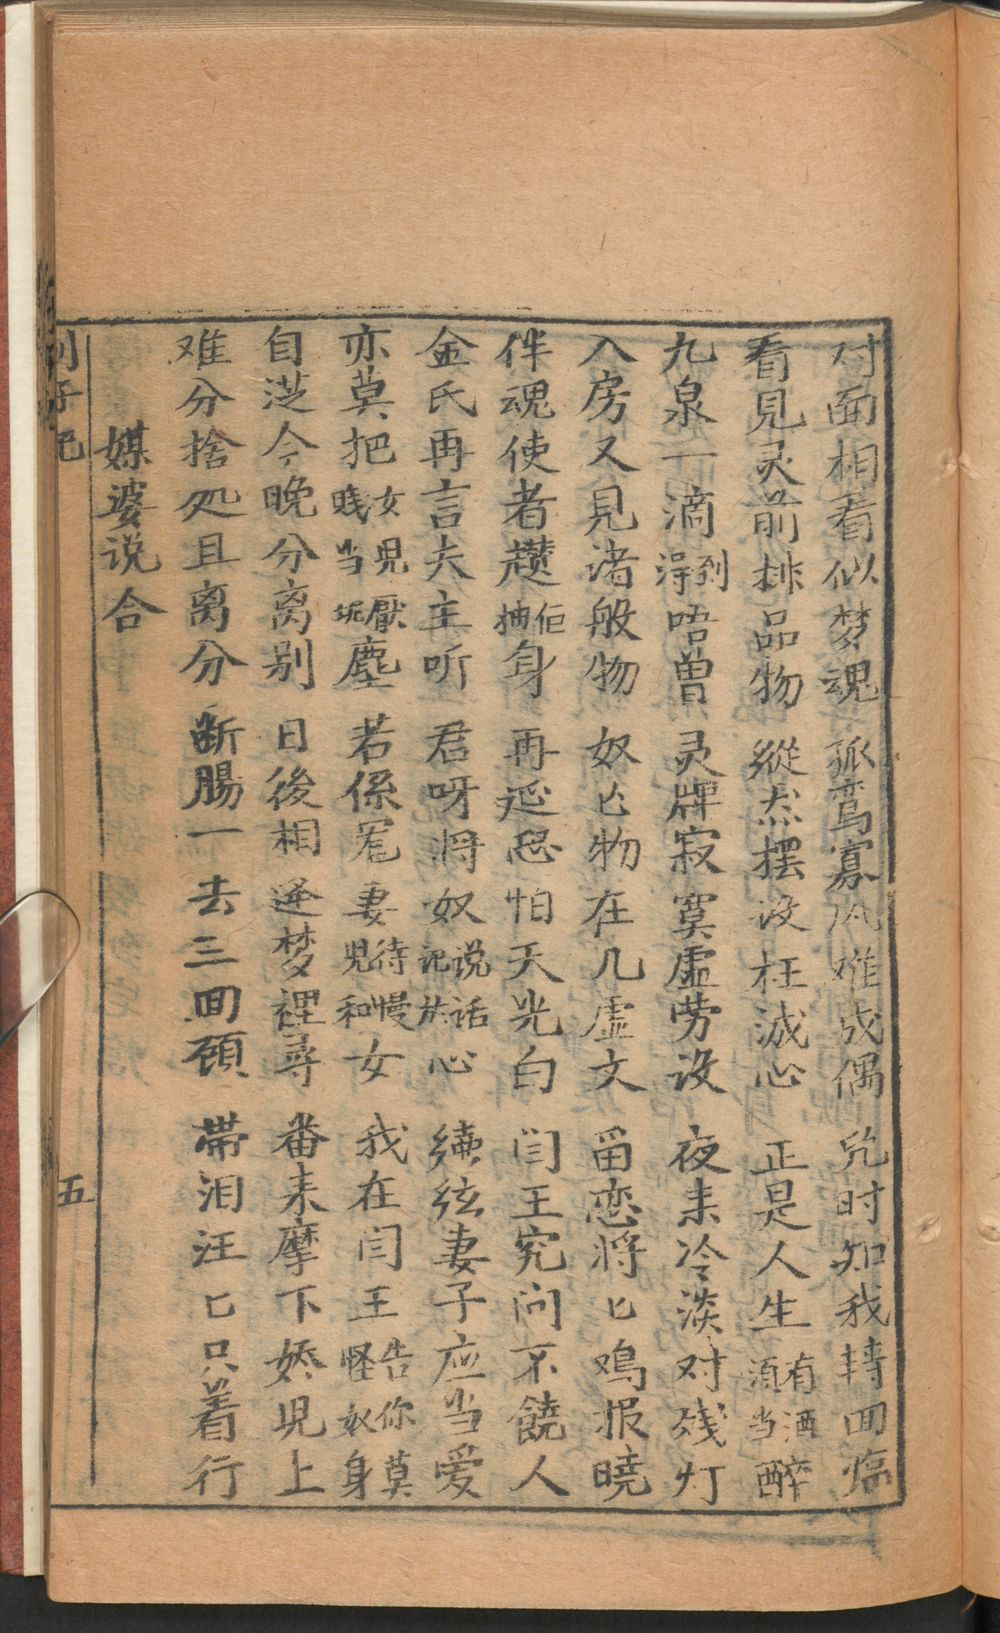 对面相看似梦魂 孤鸾寡凤难成偶 児时知我转回
看见灵前排品物 縱然摆设枉诚心 正是人生有酒須当醉
九泉一滴到得唔曽 灵牌寂寞虚劳设 夜来冷淡对残灯
入房又见诸般物 奴匕物在几虚文 留恋将匕鸡报曉
伴魂使者趱佢抽身 再延恐怕天光白 闫王究问不饒人
金氏再言夫主听 君呀将奴说话记於心 續弦妻子应当爱
亦莫把女児賤当厭塵 若係寃妻待慢児和女 我在闫王告你莫怪奴身
自从今晚分离别 日後相逢梦裡尋 番来摩下娇児上
难分捨処且离分 断腸一去三回顾 带泪汪匕只着行
媒婆说合
五